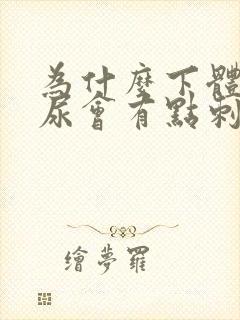 為什麼下體
尿會有點刺
繪夢羅